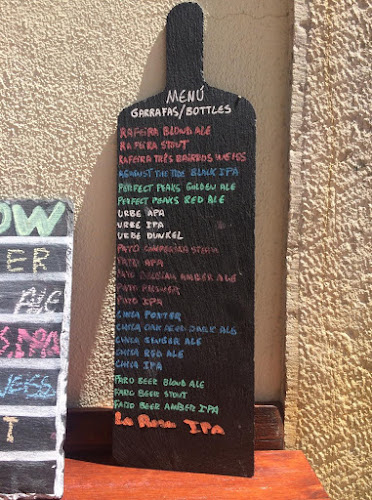 MENÚ
GARRAFAS/BOTTLES
RAFEIRA BLOND ALE
RAFEIRA STOUT
RAFEIRA TRÊS BAIRROS WEISS
AGAINST THE TIDE BLACK IPA
PERFECT PEAKS GOLDEN ALE
PERFECT PEAKS RED ALE
URBE APA
URBE IPA
URBE DUNKEL
PATO CAMPONESA STEAM
PATO APA
PATO BELGIAN AMBER ALE
PATO
PATO IPA
CHICA PORTER
CHICA OAK AGED DARK ALE
CHICA GINGER ALE
CHICA RED ALE
CHICA IPA
FARO BEER BLOND ALE
FARO BEER STOUT
FARO BEER AMBER IPA
La Rosa IPA
OW
ER
ALE
IPA
WEISS
T